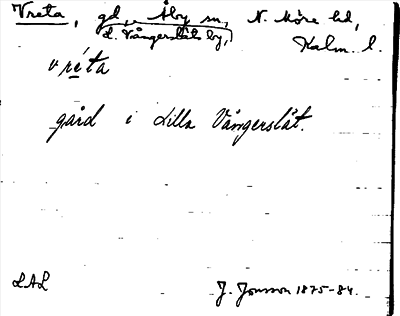 Vreta, gd, Åby sn, N. Möre hd,
L. Vångerslåts by, Kalm. l.
vréta
gård i Lilla Vångerslåt.
LAL J. Jonsson 1875-84.